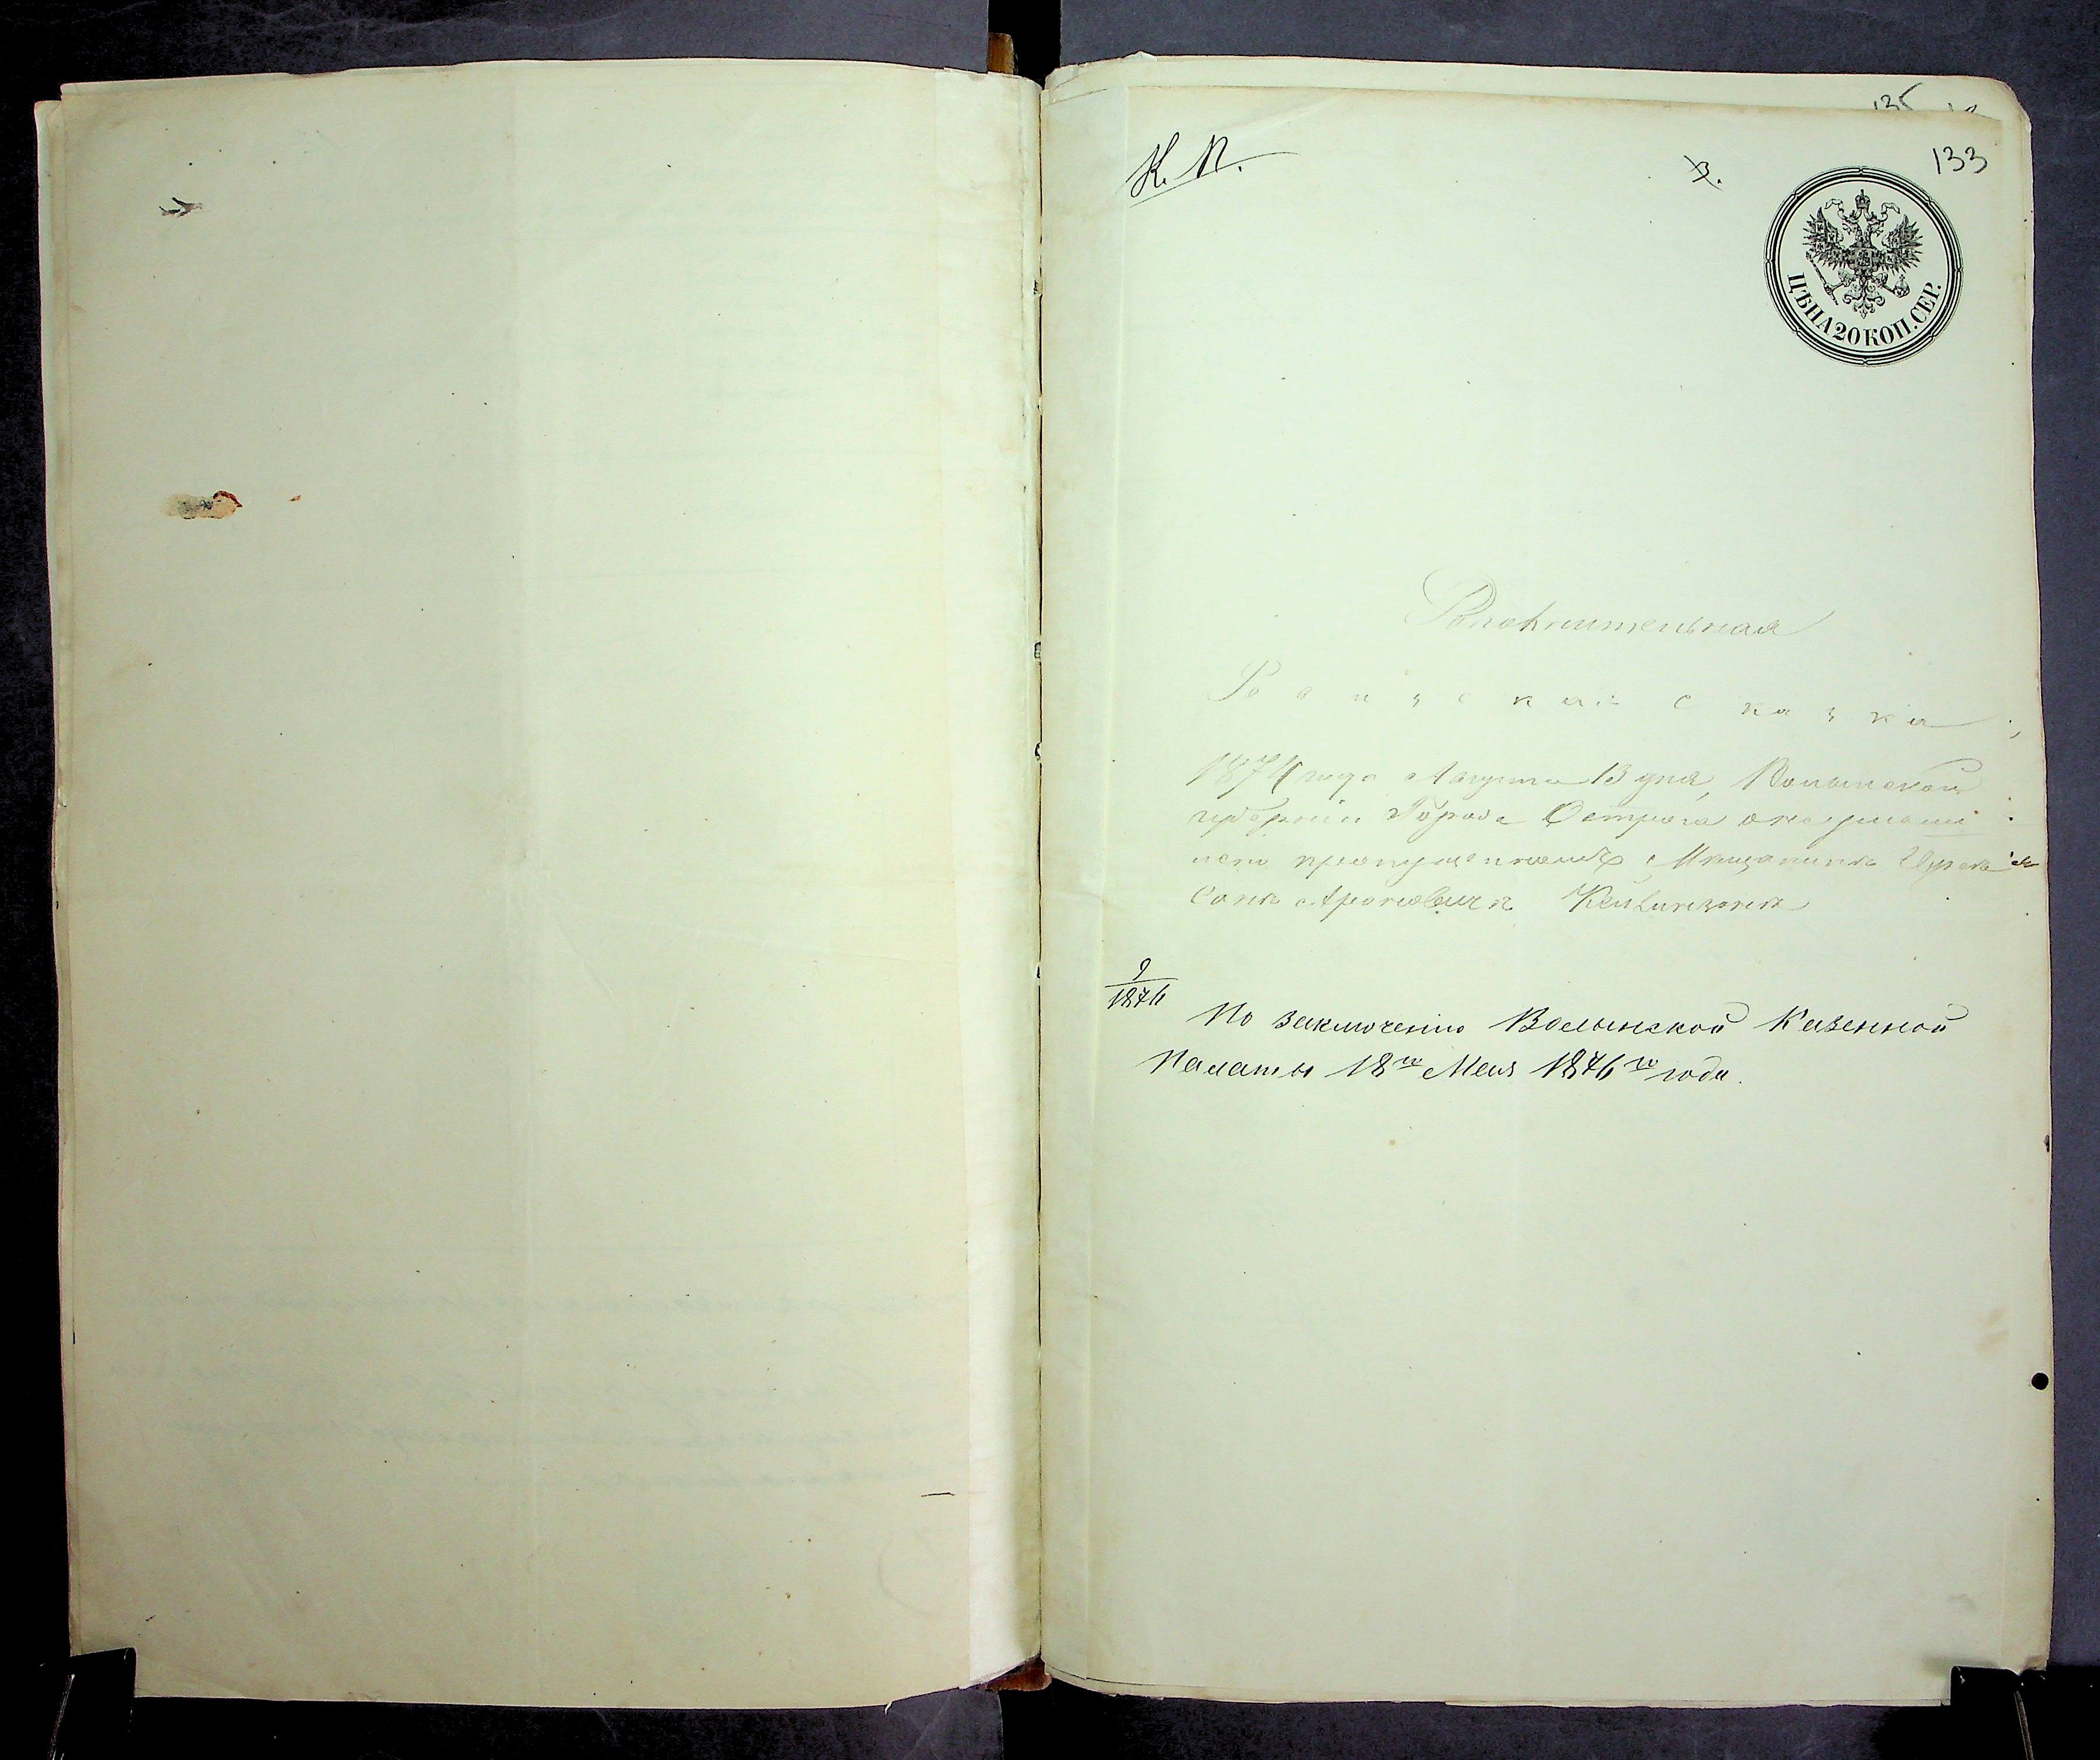 135
К. П.
3.
133
ЦѢНА 20 КОП. СЕР.
Дополнительная
Ревизская сказка,
1874 года Августа 13 дня, Волынской
губерніи Города Острога
пропущенномъ Мѣщанинѣ
Ароновичѣ
9/1876
По заключенію Волынской Казенной
Палаты 18го Мая 1876го года.